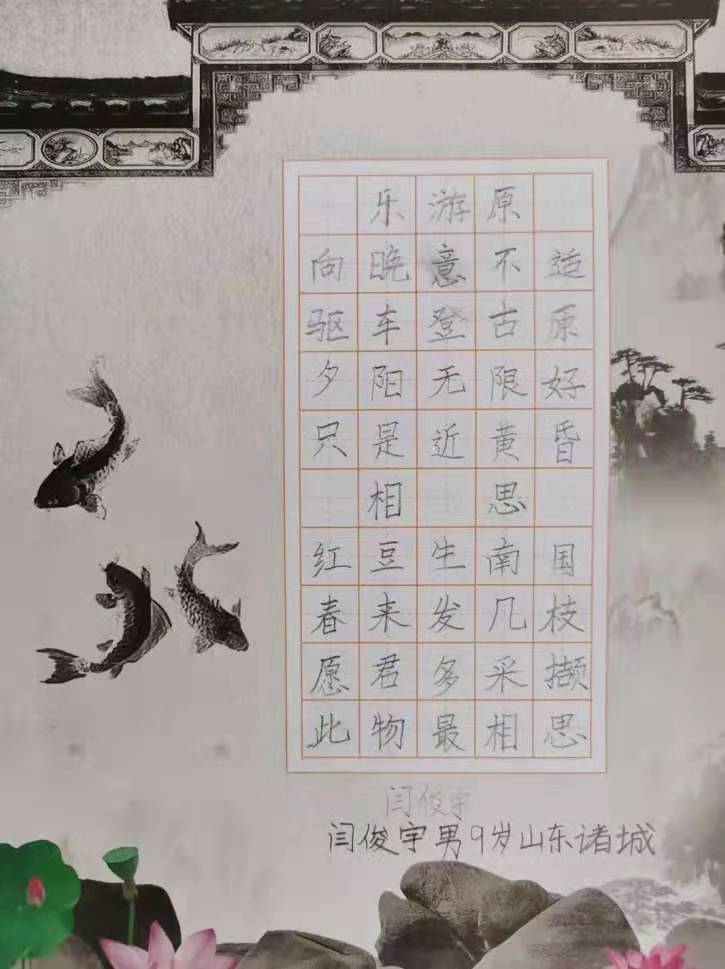 乐游原
向晚意不适
驱车登古原
夕阳无限好
只是近黄昏
相思
红豆生南国
春来发几枝
愿君多采撷
此物最相思
闫俊宇
闫俊宇男9岁山东诸城